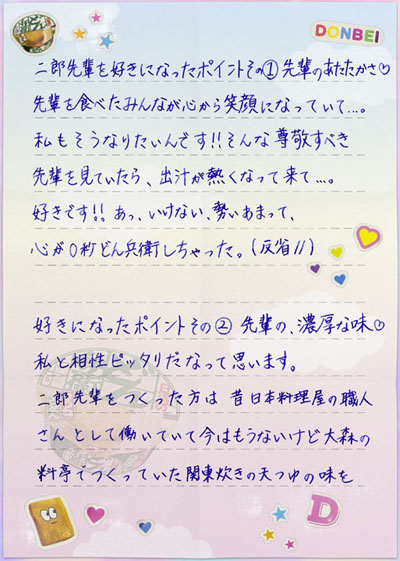 DONBEI
二郎先輩を好きになったポイントその① 先輩のあたたかさ♡
先輩を食べたみんなが心から笑顔になっていて…。
私もそうなりたいんです!!そんな尊敬すべき
先輩を見ていたら、出汁が熱くなって来て…。
好きです!!あっ、いけない、勢いあまって、
心が0秒どん兵衛しちゃった。(反省//)
好きになったポイントその② 先輩の、濃厚な味♡
私と相性ピッタリだなって思います。
二郎先輩をつくった方は 昔日本料理屋の職人
さんとして働いていて今はもうないけど大森の
料亭でつくっていた関東炊きの天つゆの味を
D